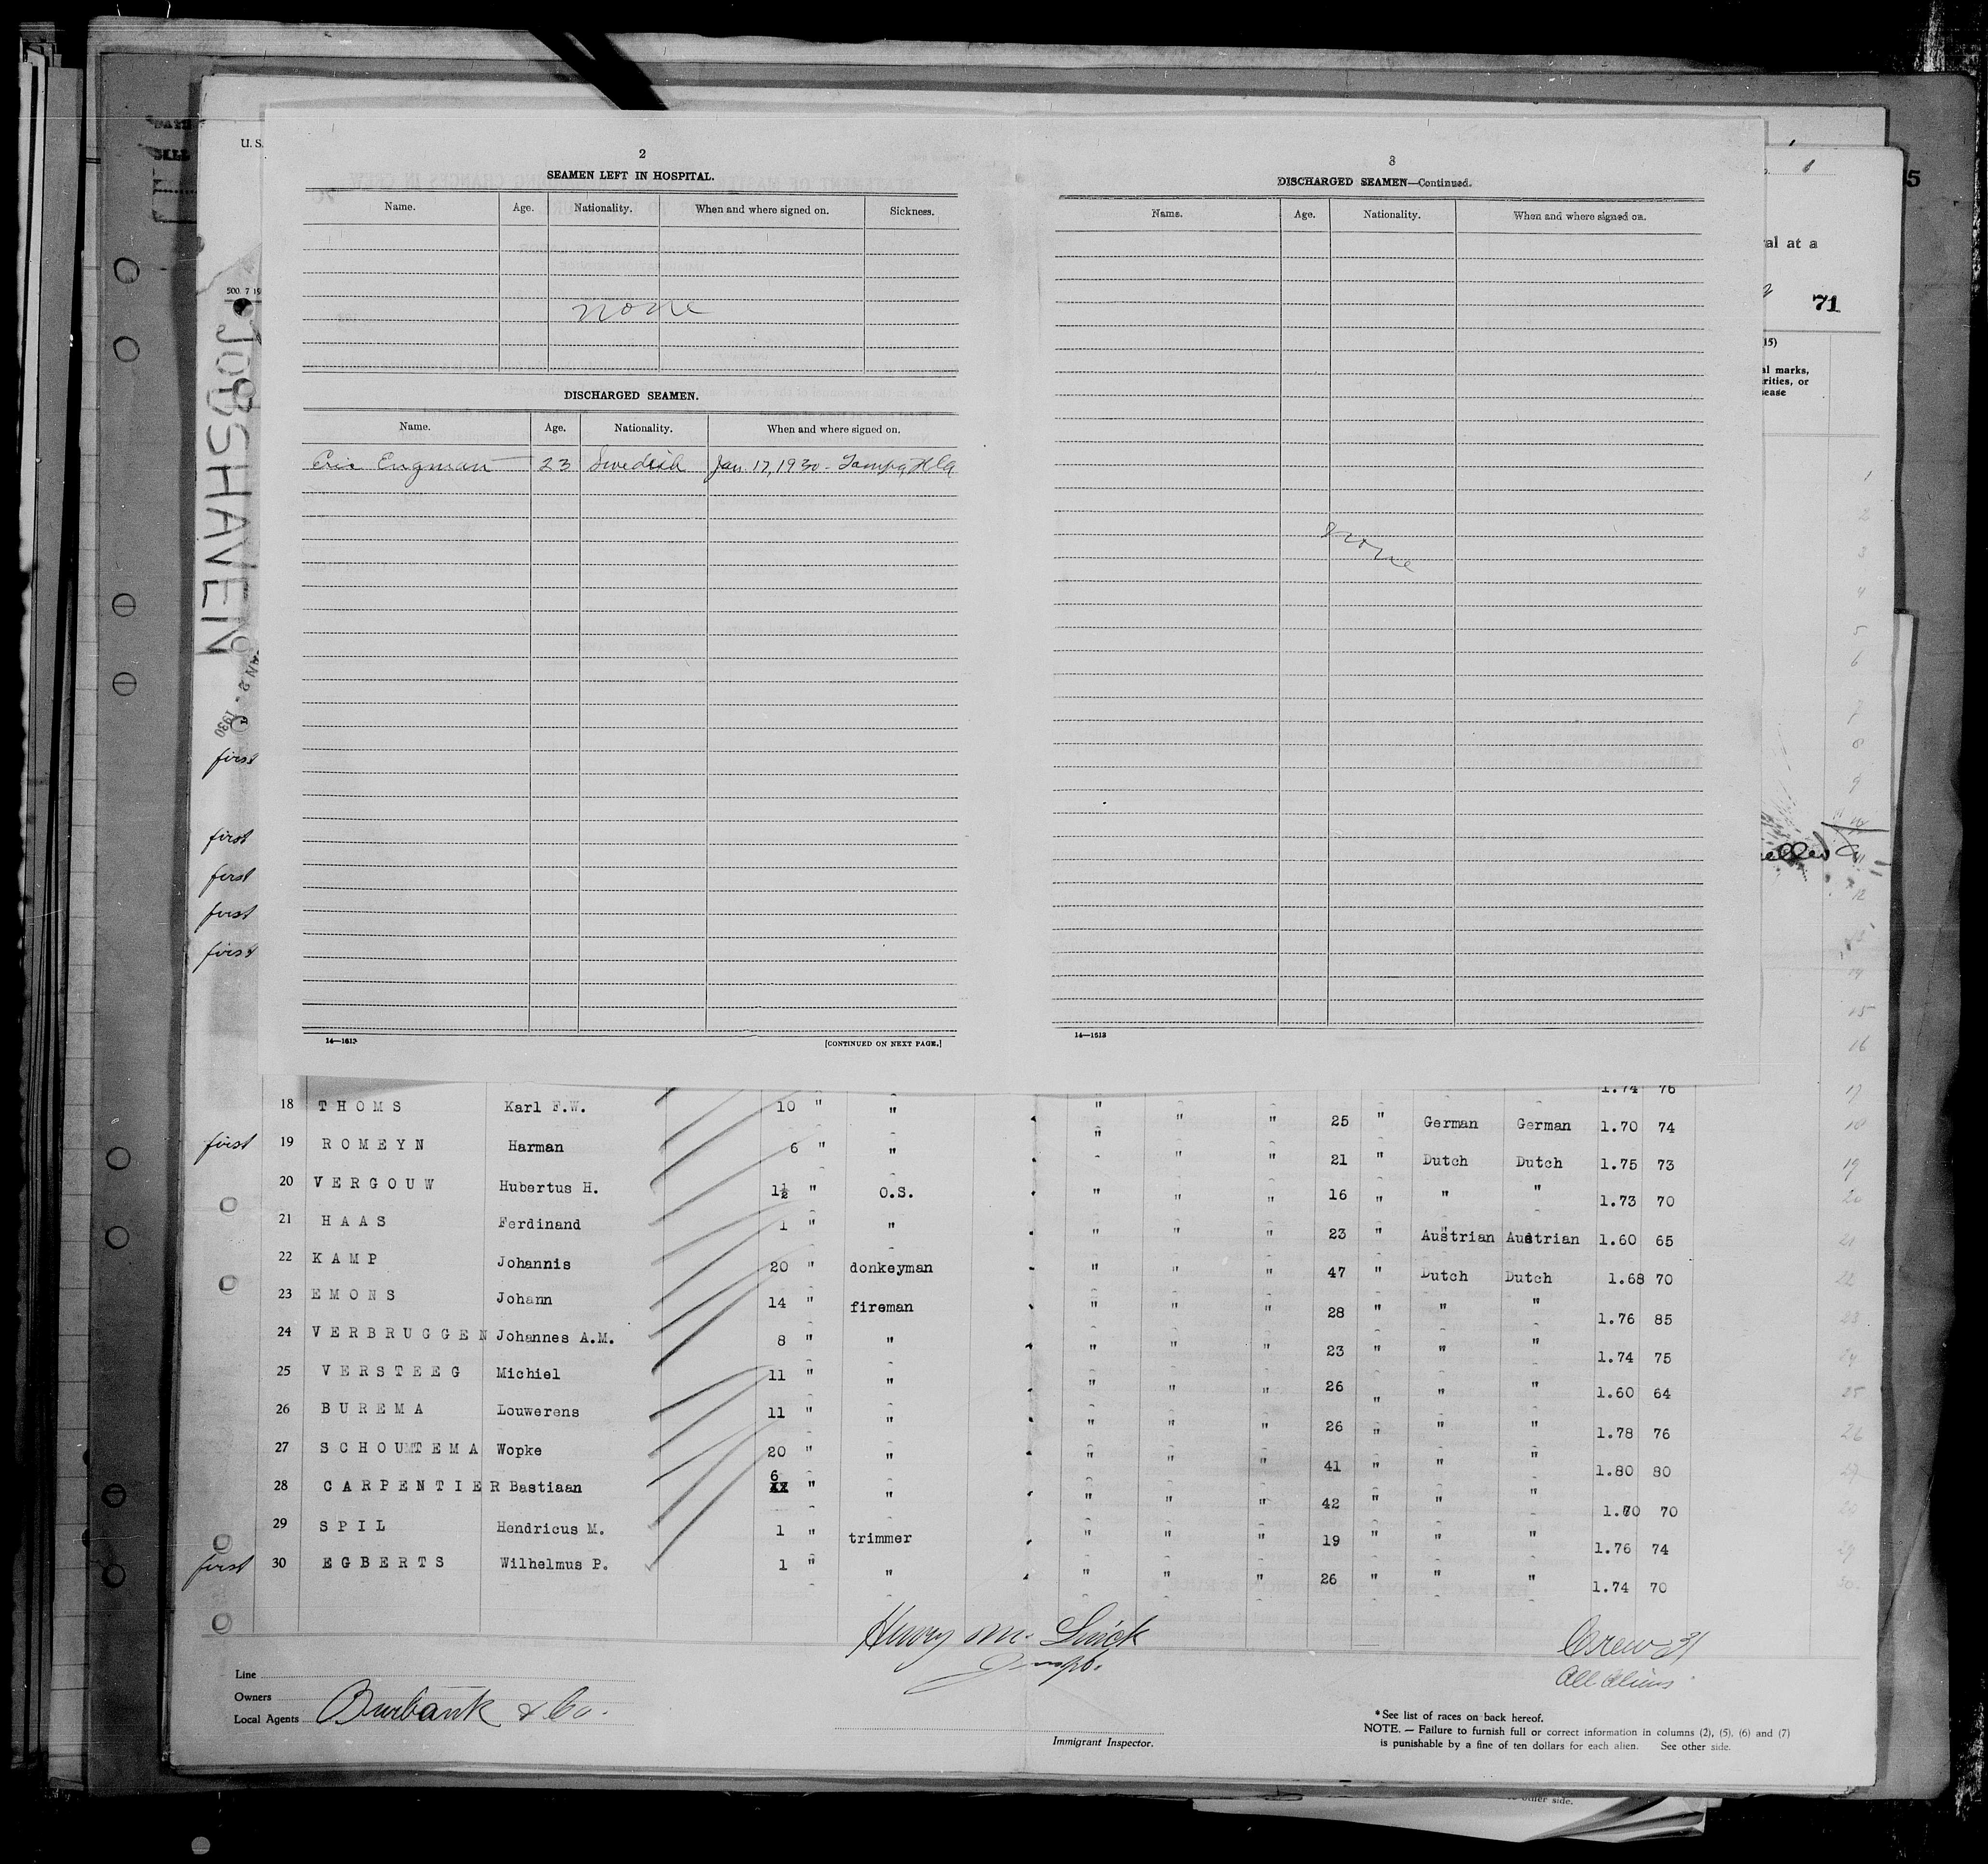 U. S.
500. 7 19
JOBSHAVEN
1930
first
first
first
first
first
first
first
2
SEAMEN LEFT IN HOSPITAL.
Name. Age. Nationality. When and where signed on. Sickness.
none
DISCHARGED SEAMEN.
Name. Age. Nationality. When and where signed on.
Eric Engman 23 Swedish Jan 17, 1930 - Tampa, Fla
14—1613
[CONTINUED ON NEXT PAGE.]
3
DISCHARGED SEAMEN—Continued.
Name. Age. Nationality. When and where signed on.
none
14—1513
5
al at a
71
15)
al marks,
rities, or
ease
1
2
3
4
5
6
7
8
9
12
14
15
16
17
1.74 76
18 THOMS Karl F.W. 10 " " " " " 25 " German German 1.70 74
19 ROMEYN Harman 6 " " " " " 21 " Dutch Dutch 1.75 73 19
20 VERGOUW Hubertus H. 1½ " O.S. " " " 16 " " " 1.73 70 20
21 HAAS Ferdinand 1 " " " " " 23 " Austrian Austrian 1.60 65 21
22 KAMP Johannis 20 " donkeyman " " " 47 " Dutch Dutch 1.68 70 22
23 EMONS Johann 14 " fireman " " " 28 " " " 1.76 85 23
24 VERBRUGGEN Johannes A.M. 8 " " " " " 23 " " " 1.74 75 24
25 VERSTEEG Michiel 11 " " " " " 26 " " " 1.60 64 25
26 BUREMA Louwerens 11 " " " " " 26 " " " 1.78 76 26
27 SCHOUTEMA Wopke 20 " " " " " 41 " " " 1.80 80 27
28 CARPENTIER Bastiaan 6 " " " " " 42 " " " 1.70 70
29 SPIL Hendricus M. 1 " trimmer " " " 19 " " " 1.76 74 29
30 EGBERTS Wilhelmus P. 1 " " " " " 26 " " " 1.74 70 30
Crew 31
All Aliens
Line
Owners
Local Agents Burbank & Co.
Immigrant Inspector.
*See list of races on back hereof.
NOTE. — Failure to furnish full or correct information in columns (2), (5), (6) and (7)
is punishable by a fine of ten dollars for each alien. See other side.
other side.